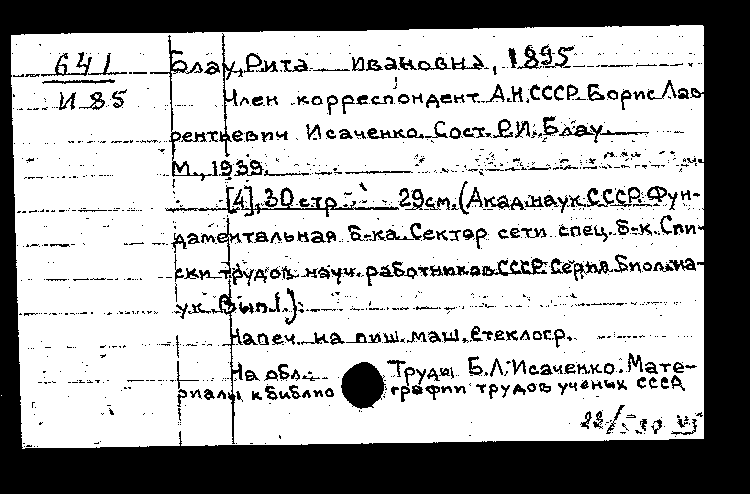 641
И 85
Блау, Рита Ивановна, 1895
Член корреспондент А.Н.СССР Борис Лав-
рентиевич Исаченко. Сост. Р.И. Блау.
М., 1939.
[4], 30 стр 29см. (Акад. наук СССР. Фун-
даментальная б-ка. Сектор сети спец. б-к. Спи-
ски трудов науч. работников СССР. Серия биол. на-
ук. Вып. 1.).
Напеч. на пиш. маш. Стеклогр.
На обл.: Труды Б.Л. Исаченко. Мате-
риалы к библио графии трудов ученых СССР